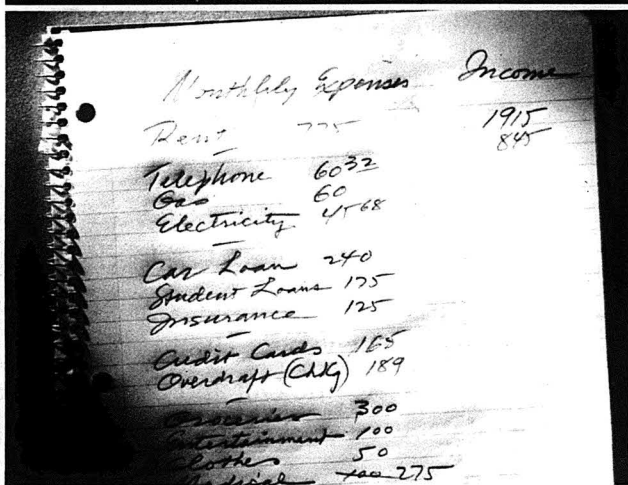 Monthly Expenses Income
Rent 775 1915
845
Telephone 60 32
Gas 60
Electricity 45 68
Car Loan 240
Student Loans 175
Insurance 125
Credit Cards 165
Overdraft (Chkg) 189
Groceries 300
Entertainment 100
Clothes 50
Medical 275